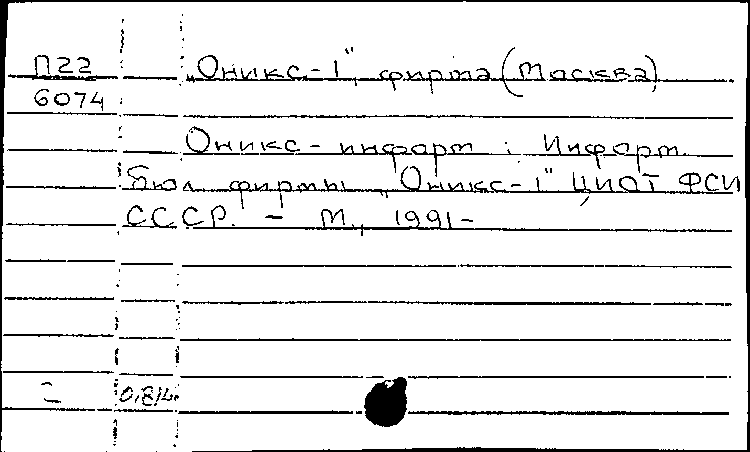 П22 „Оникс-1", фирма (Москва)
6074
Оникс-информ : Информ.
бюл. фирмы „Оникс-1" ЦИОТ ФСИ
СССР. - М., 1991-